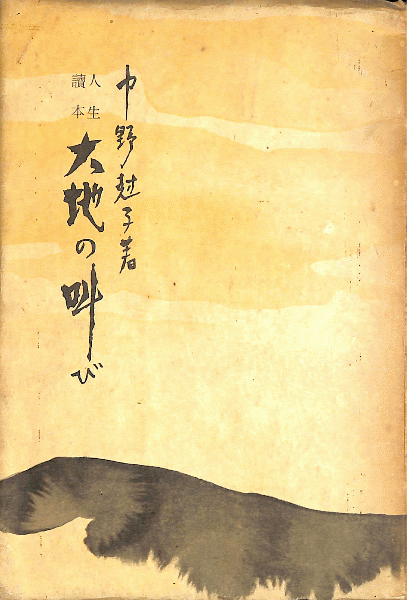 中野尅子著
人生
讀本
大地の叫び